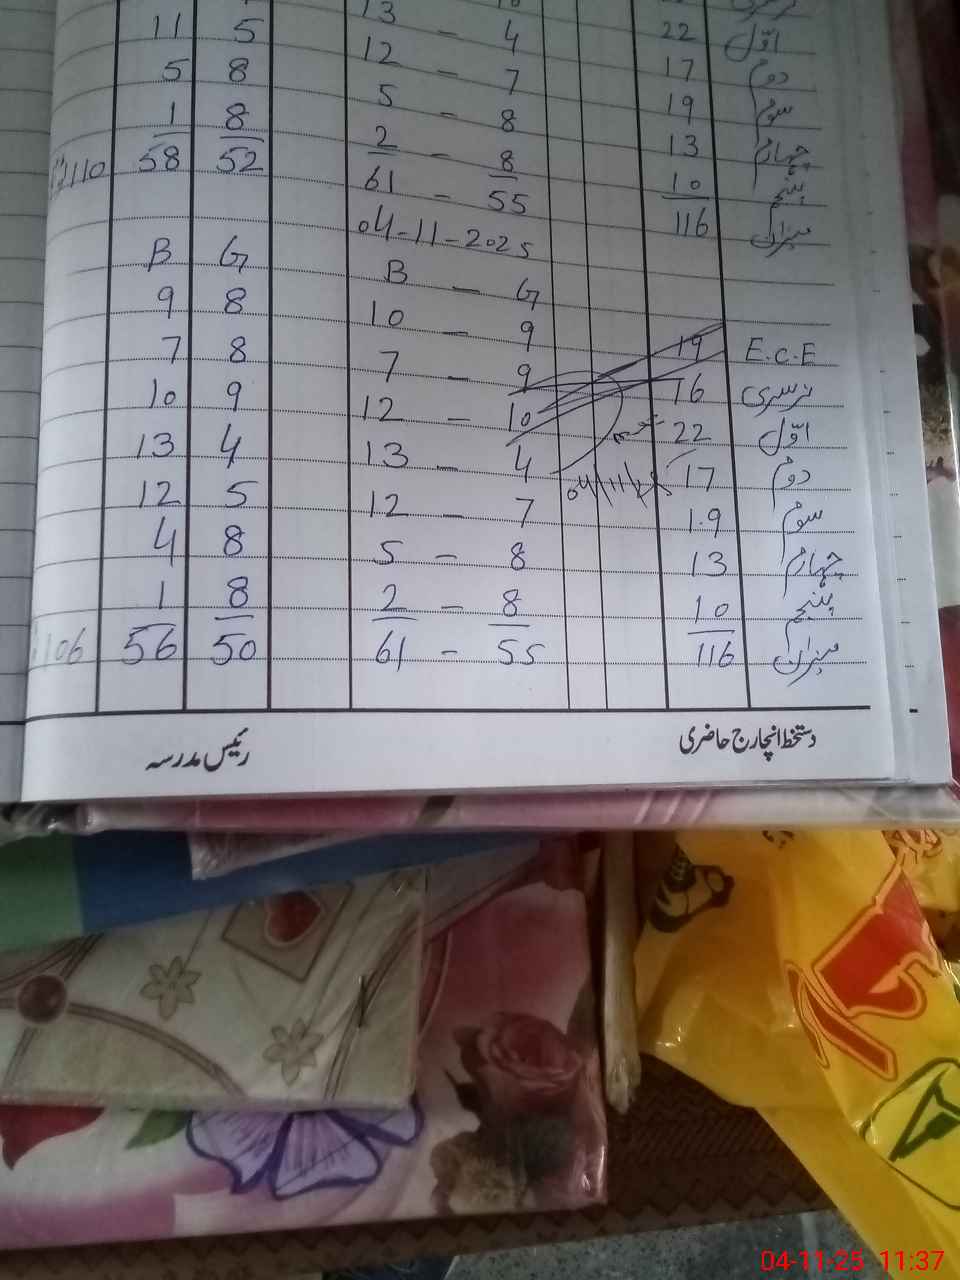 22 اوّل 4 - 13 5 11
17 دوم 7 - 12 8 5
19 سوم 8 - 5 8 1
13 چہارم 8 - 2 52 58 110
10 پنجم 55 - 61
116 میزان 04-11-2025
B G B - G
E.C.E 19 9 - 10 8 9
نرسری 16 9 - 7 8 7
اوّل 22 10 - 12 9 10
دوم 17 4 - 13 4 13
سوم 19 7 - 12 5 12
چہارم 13 8 - 5 8 4
پنجم 10 8 - 2 8 1
میزان 116 55 - 61 50 56 106
دستخط انچارج حاضری رئیس مدرسہ
04-11-25 11:37